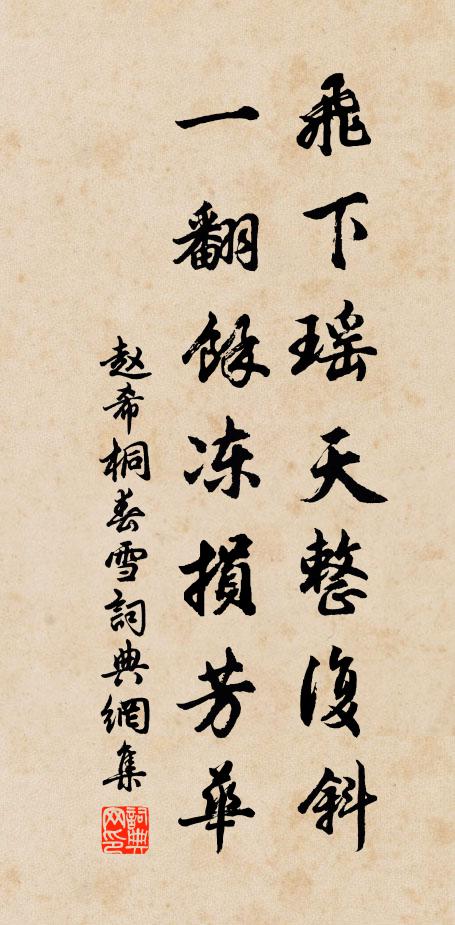 飛下瑶天整復斜
一翻餘冻損芳華
赵希桐春雪詞典網集
詞典网印